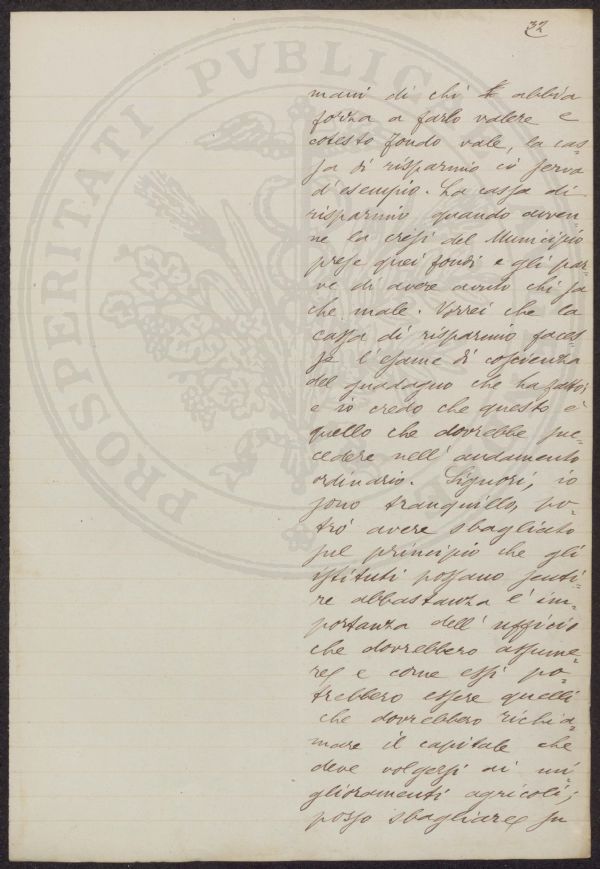 32
mani di chi abbia
forza a farlo valere e
cotesto fondo vale, la cas=
sa di risparmio ci serva
d'esempio. La cassa di
risparmio quando avven=
ne la crisi del Municipio
prese quei fondi e gli par=
ve di avere avuto chi sa
che male. Vorrei che la
cassa di risparmio faces=
se l'esame di coscienza
del guadagno che ha fatto;
e io credo che questo è
quello che dovrebbe suc=
cedere nell'andamento
ordinario. Signori, io
sono tranquillo, po=
trò avere sbagliato
sul principio che gli
istituti possano senti=
re abbastanza l'im=
portanza dell'ufficio
che dovrebbero assume=
re e come essi po=
trebbero essere quelli
che dovrebbero richia=
mare il capitale che
deve volgersi ai mi=
glioramenti agricoli;
posso sbagliare su
PROSPERITATI PVBLICAE